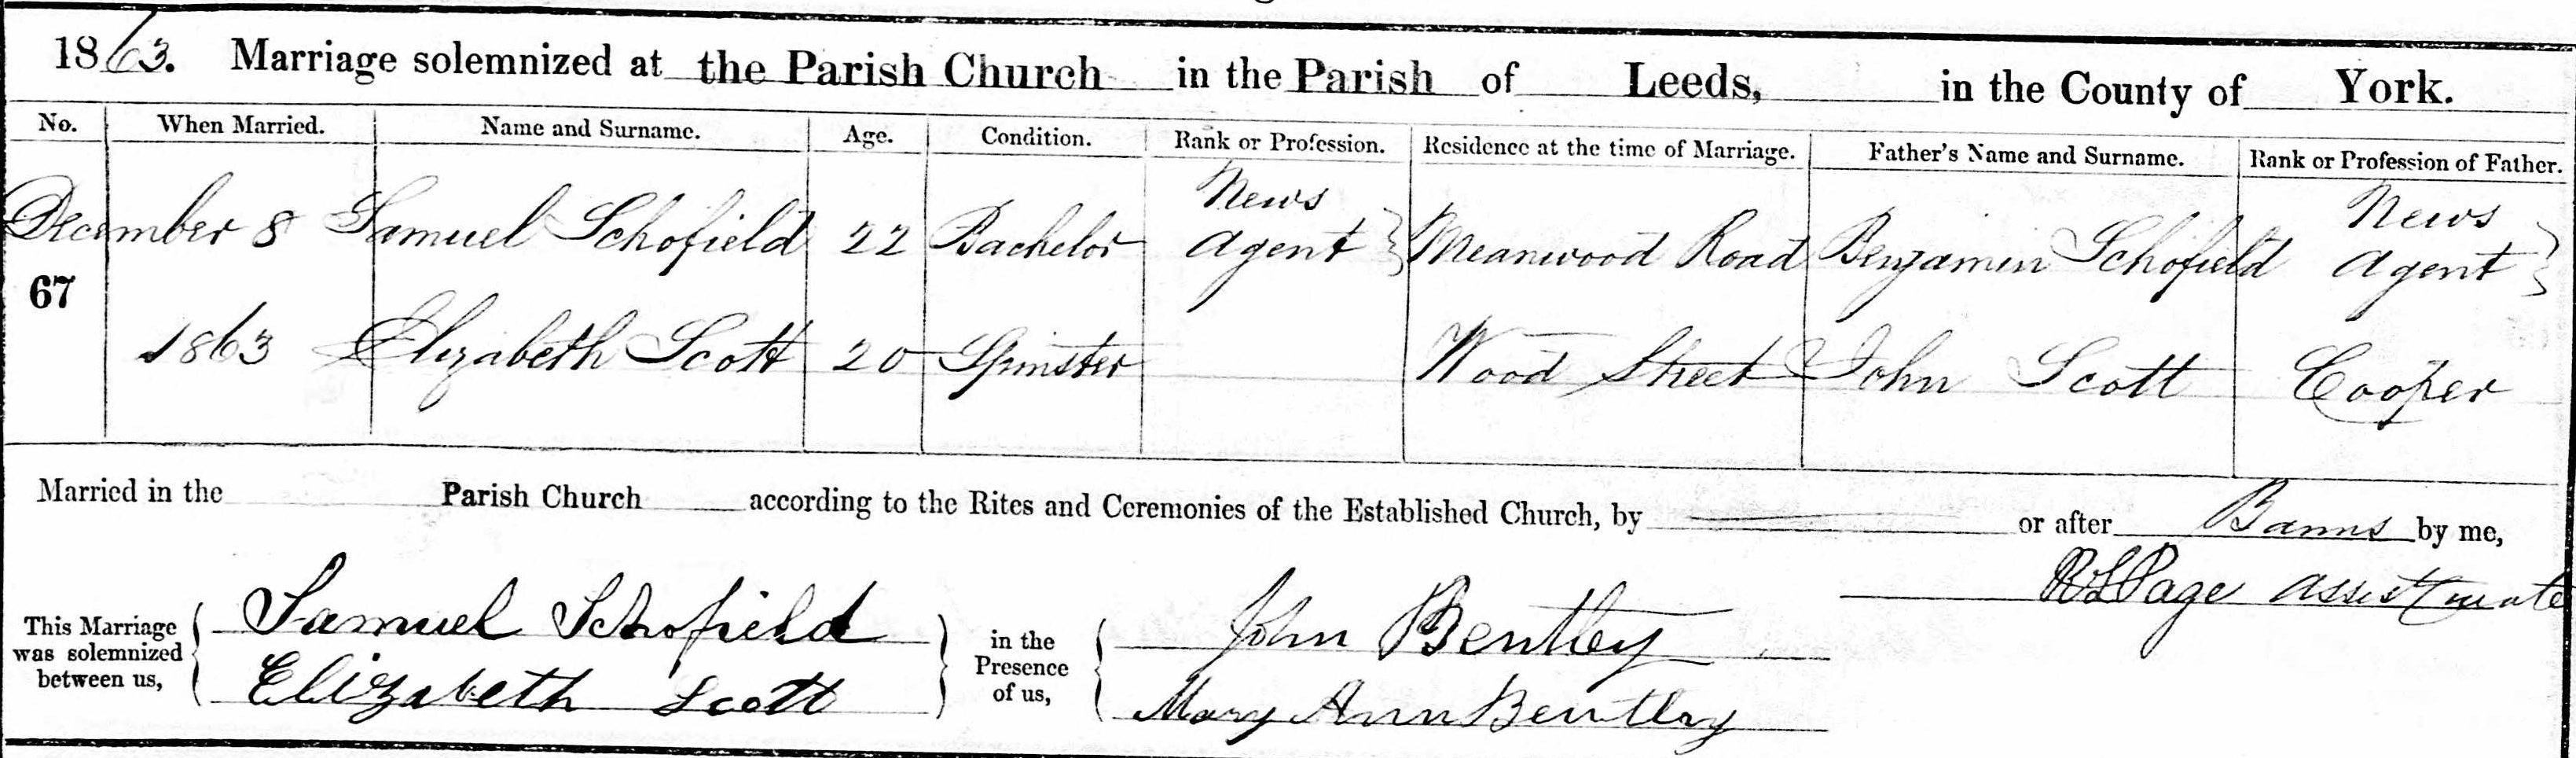 1863. Marriage solemnized at the Parish Church in the Parish of Leeds, in the County of York.
No. When Married. Name and Surname. Age. Condition. Rank or Profession. Residence at the time of Marriage. Father's Name and Surname. Rank or Profession of Father.
December 8 Samuel Schofield 22 Bachelor News Agent } Meanwood Road Benjamin Schofield News Agent }
67
1863 Elizabeth Scott 20 Spinster Wood Street John Scott Cooper
Married in the Parish Church according to the Rites and Ceremonies of the Established Church, by or after Banns by me,
Page Assist Curate
This Marriage was solemnized between us, { Samuel Schofield } in the Presence of us, { John Bentley
Elizabeth Scott Mary Ann Bentley